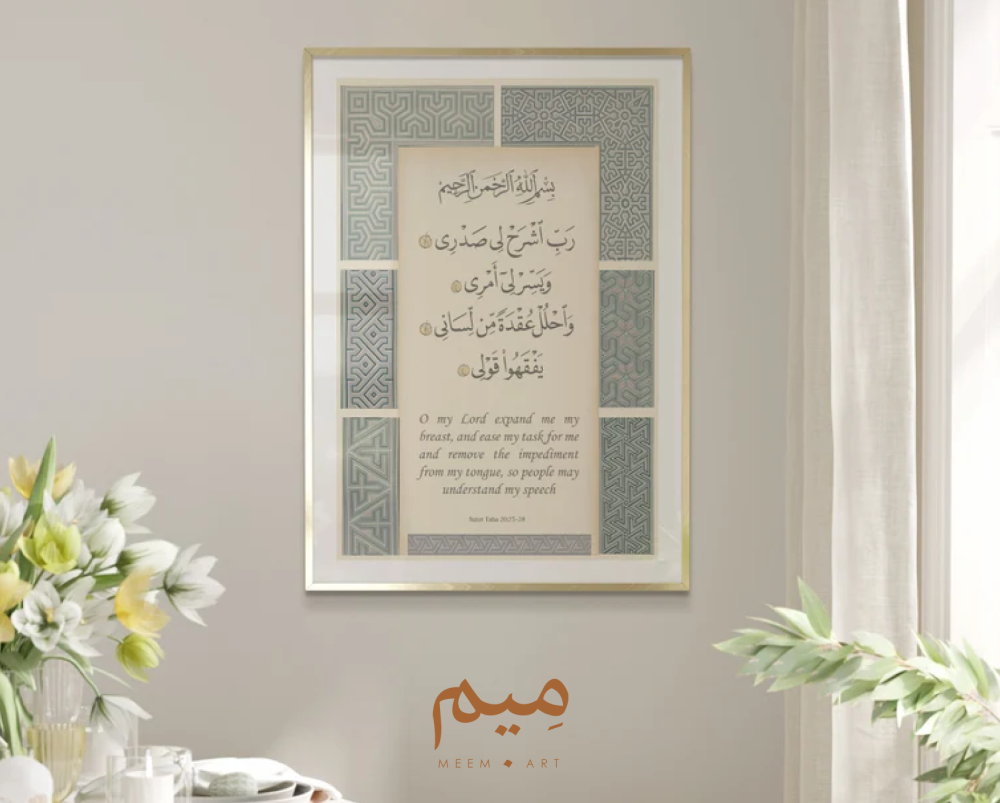 بِسْمِ ٱللَّهِ ٱلرَّحْمَٰنِ ٱلرَّحِيمِ
رَبِّ ٱشْرَحْ لِى صَدْرِى ۝
وَيَسِّرْ لِىٓ أَمْرِى ۝
وَٱحْلُلْ عُقْدَةً مِّن لِّسَانِى ۝
يَفْقَهُوا۟ قَوْلِى ۝
O my Lord expand me my
breast, and ease my task for me
and remove the impediment
from my tongue, so people may
understand my speech
Surat Taha 20:25-28
مِيم
MEEM ◆ ART